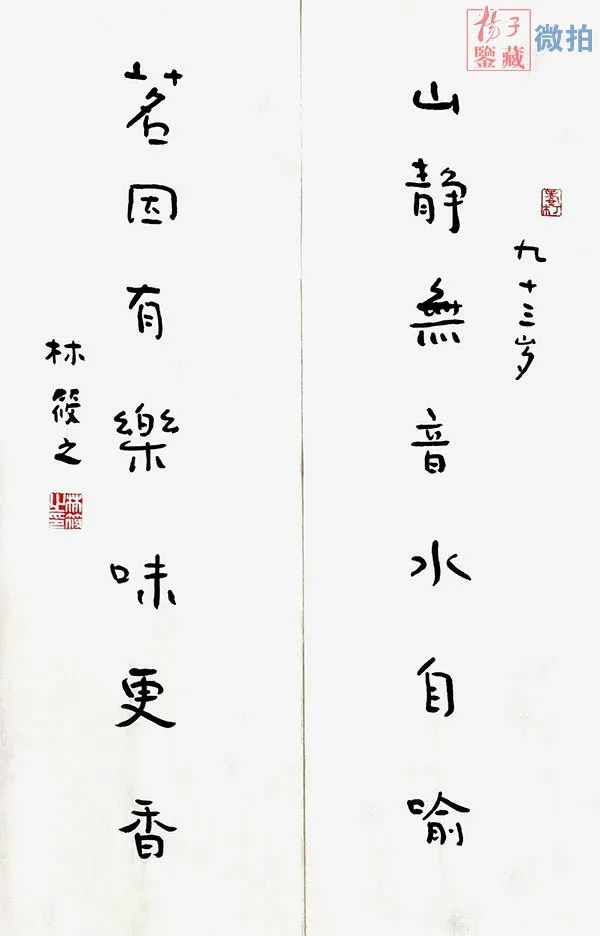 山静無音水自喻
九十三岁
茗因有樂味更香
林筱之
林筱之印
揚子鑒藏
微拍